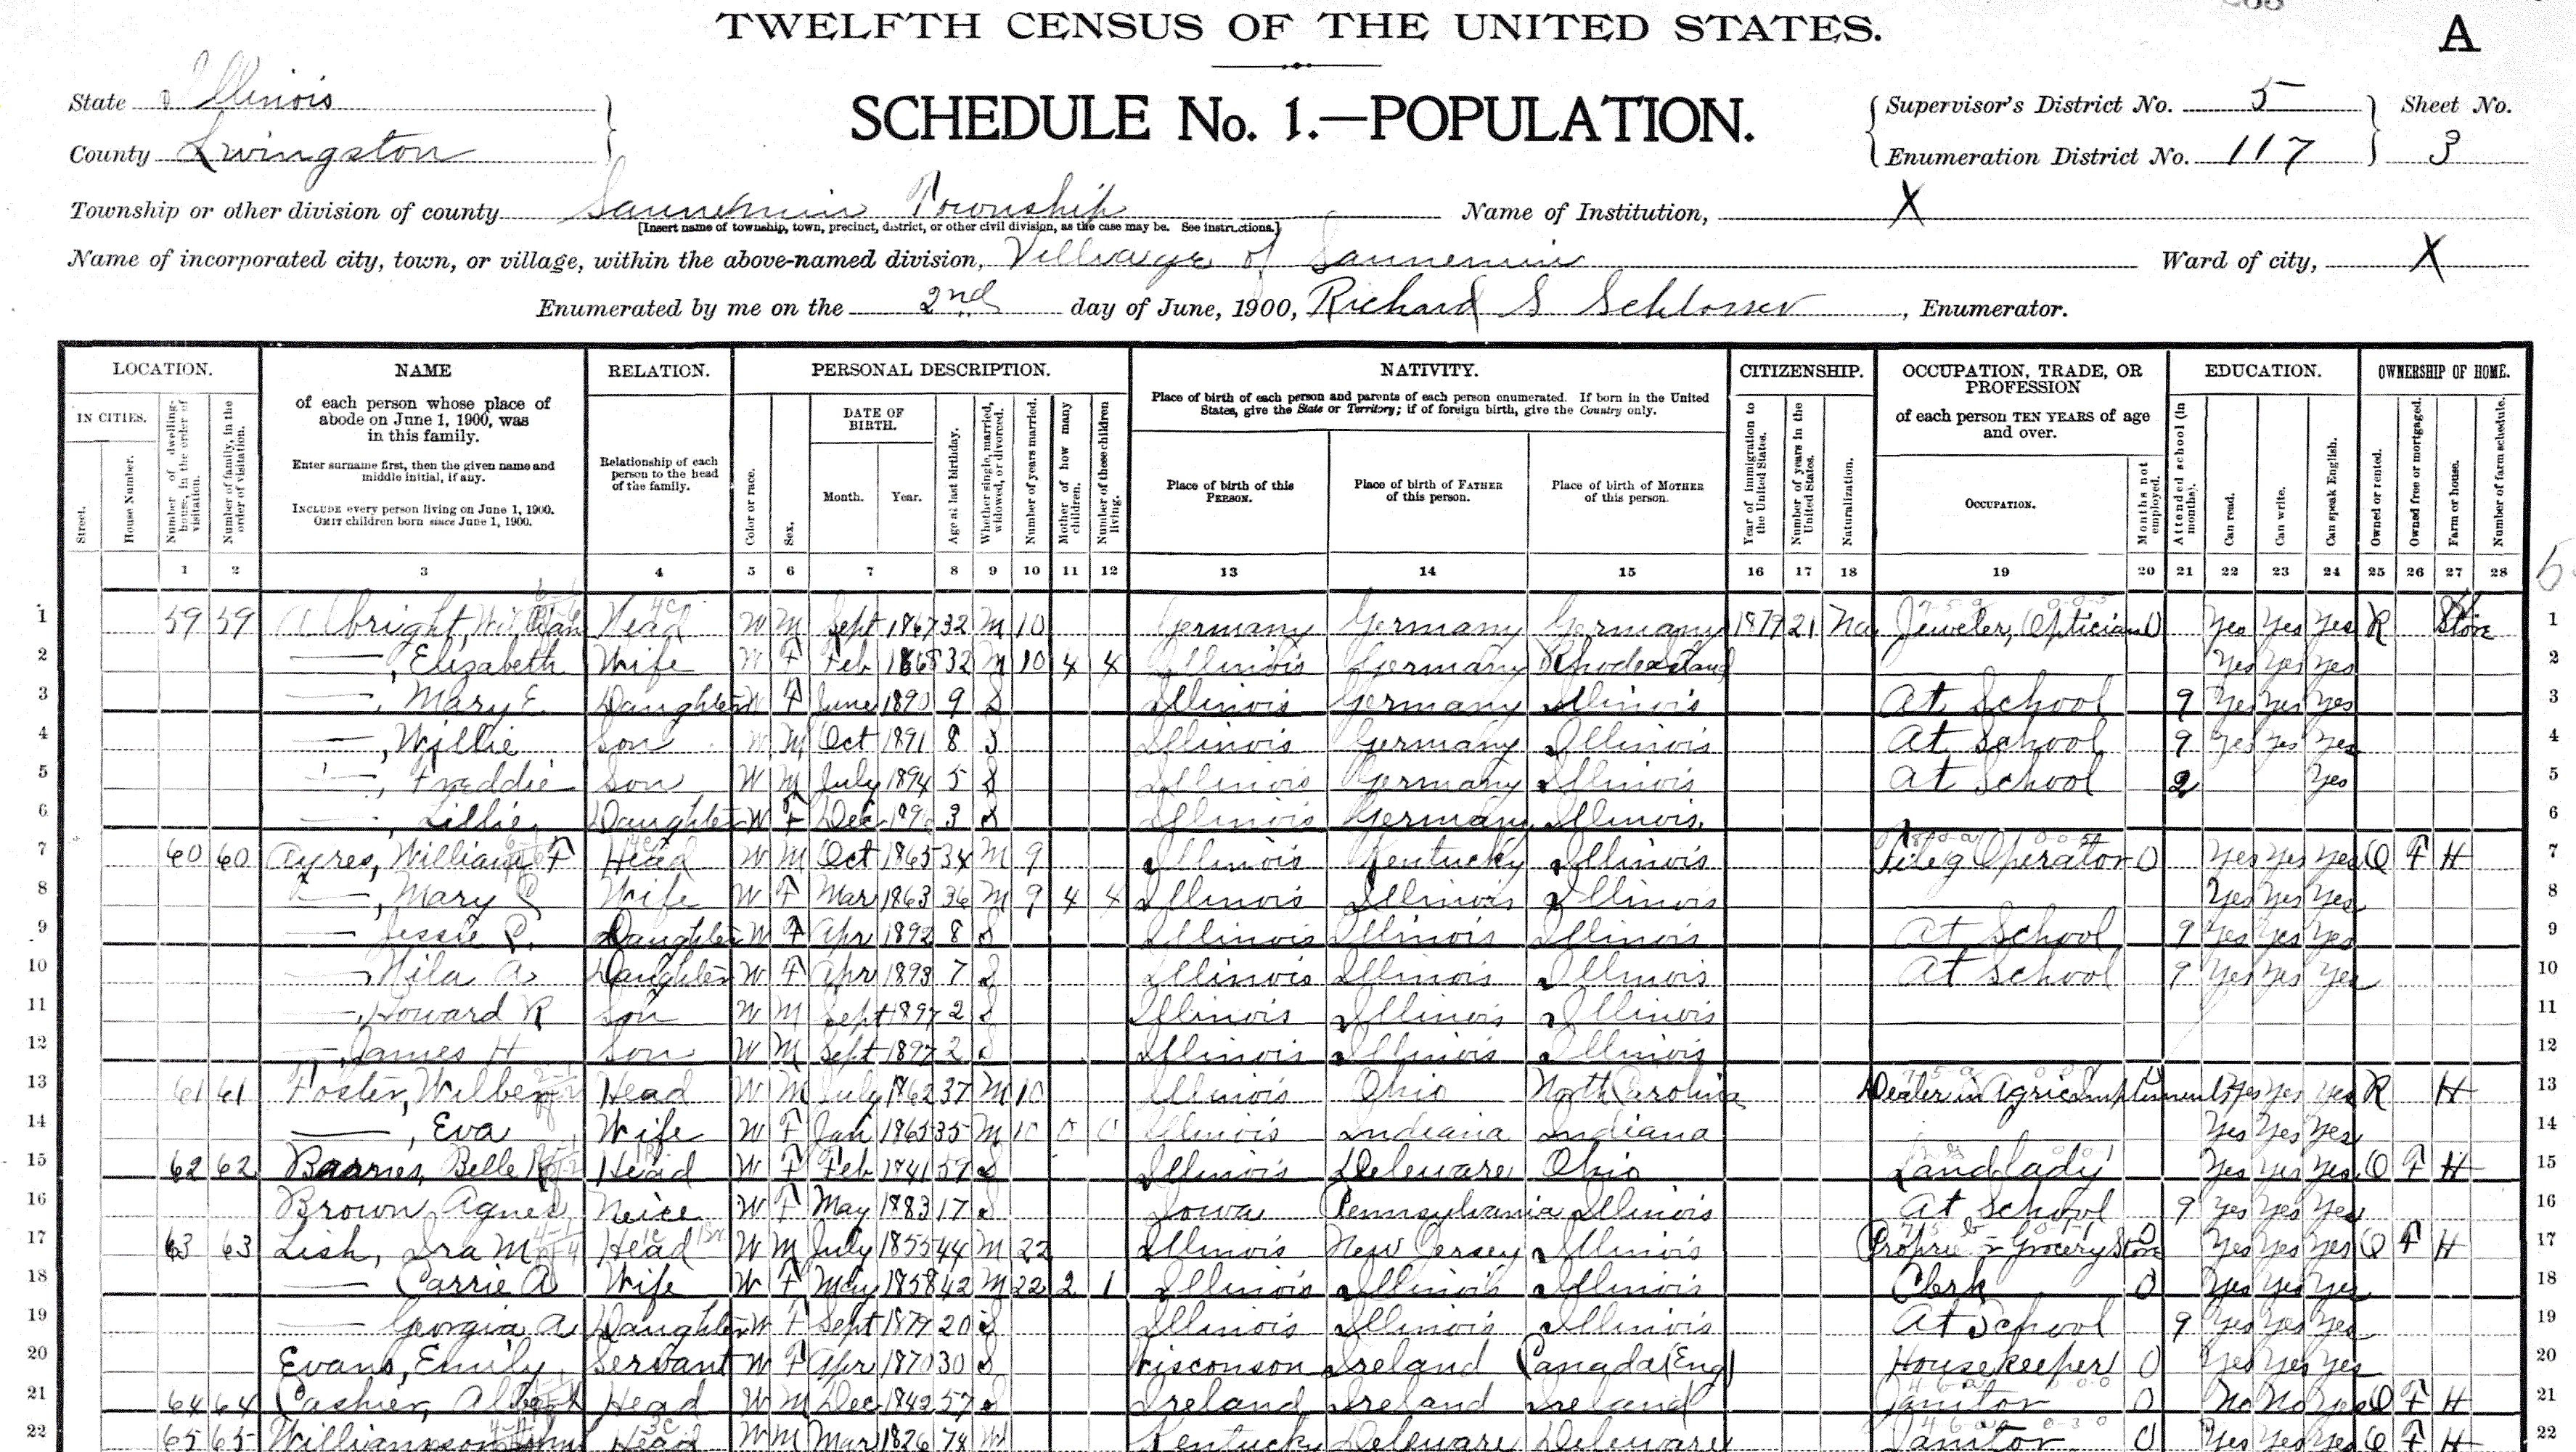 TWELFTH CENSUS OF THE UNITED STATES.
A
State Illinois
County Livingston
SCHEDULE No. 1.—POPULATION.
Supervisor's District No. 5
Enumeration District No. 117
Sheet No.
3
Township or other division of county Saunemin Township
[Insert name of township, town, precinct, district, or other civil division, as the case may be. See instructions.]
Name of Institution, X
Name of incorporated city, town, or village, within the above-named division, Village of Saunemin
Ward of city, X
Enumerated by me on the 2nd day of June, 1900, Richard S Schlosser, Enumerator.
LOCATION. NAME RELATION. PERSONAL DESCRIPTION. NATIVITY. CITIZENSHIP. OCCUPATION, TRADE, OR PROFESSION EDUCATION. OWNERSHIP OF HOME.
IN CITIES.
Street.
House Number.
Number of dwelling-house, in the order of visitation.
Number of family, in the order of visitation.
of each person whose place of abode on June 1, 1900, was in this family.
Enter surname first, then the given name and middle initial, if any.
INCLUDE every person living on June 1, 1900.
OMIT children born since June 1, 1900.
Relationship of each person to the head of the family.
Color or race.
Sex.
DATE OF BIRTH.
Month. Year.
Age at last birthday.
Whether single, married, widowed, or divorced.
Number of years married.
Mother of how many children.
Number of these children living.
Place of birth of each person and parents of each person enumerated. If born in the United States, give the State or Territory; if of foreign birth, give the Country only.
Place of birth of this PERSON.
Place of birth of FATHER of this person.
Place of birth of MOTHER of this person.
Year of immigration to the United States.
Number of years in the United States.
Naturalization.
of each person TEN YEARS of age and over.
OCCUPATION.
Months not employed.
Attended school (in months).
Can read.
Can write.
Can speak English.
Owned or rented.
Owned free or mortgaged.
Farm or house.
Number of farm schedule.
1 2 3 4 5 6 7 8 9 10 11 12 13 14 15 16 17 18 19 20 21 22 23 24 25 26 27 28
1 59 59 Albright, William Head W M Sept 1867 32 M 10 Germany Germany Germany 1879 21 Na Jeweler, Optician 0 Yes Yes Yes R Store 1
2 —, Elizabeth Wife W F Feb 1868 32 M 10 4 4 Illinois Germany Rhode Island Yes Yes Yes 2
3 —, Mary E. Daughter W F June 1890 9 S Illinois Germany Illinois At School 9 Yes Yes Yes 3
4 —, Willie Son W M Oct 1891 8 S Illinois Germany Illinois At School 9 Yes Yes Yes 4
5 —, Freddie Son W M July 1894 5 S Illinois Germany Illinois At School 2 Yes 5
6 —, Lillie Daughter W F Dec 3 S Illinois Germany Illinois 6
7 60 60 Ayres, William F Head W M Oct 1865 34 M 9 Illinois Kentucky Illinois Teleg Operator 0 Yes Yes Yes O F H 7
8 —, Mary Wife W F Mar 1863 36 M 9 4 4 Illinois Illinois Illinois Yes Yes Yes 8
9 — Jessie Daughter W F Apr 1892 8 S Illinois Illinois Illinois At School 9 Yes Yes Yes 9
10 — A Daughter W F Apr 1893 7 S Illinois Illinois Illinois At School 9 Yes Yes Yes 10
11 —, Howard R Son W M Sept 1897 2 S Illinois Illinois Illinois 11
12 —, James H Son W M Sept 1897 2 S Illinois Illinois Illinois 12
13 61 61 Foster, Wilber Head W M July 1862 37 M 10 Illinois Ohio North Carolina Dealer in Agric implements Yes Yes Yes R H 13
14 —, Eva Wife W F Jan 1865 35 M 10 0 0 Illinois Indiana Indiana Yes Yes Yes 14
15 62 62 Belle Head W F Feb 1841 59 S Illinois Deleware Ohio Landlady Yes Yes Yes O F H 15
16 Brown Agnes Neice W F May 1883 17 S Iowa Pennsylvania Illinois At School 9 Yes Yes Yes 16
17 63 63 Lish, Ira M Head W M July 1855 44 M 22 Illinois New Jersey Illinois Grocery Store Yes Yes Yes O F H 17
18 — Carrie A Wife W F May 1858 42 M 22 2 1 Illinois Illinois Illinois Clerk 0 Yes Yes Yes 18
19 — Georgia A Daughter W F Sept 1879 20 S Illinois Illinois Illinois At School 9 Yes Yes Yes 19
20 Evans, Emily Servant W F Apr 1870 30 S Wisconson Ireland Canada (Eng) Housekeeper 0 Yes Yes Yes 20
21 64 64 Cashier, Albert Head W M Dec 1842 57 S Ireland Ireland Ireland Janitor 0 No No Yes O F H 21
22 65 65 Williamson Head W M Mar 1826 74 W Kentucky Deleware Deleware Janitor 0 Yes Yes Yes O F H 22